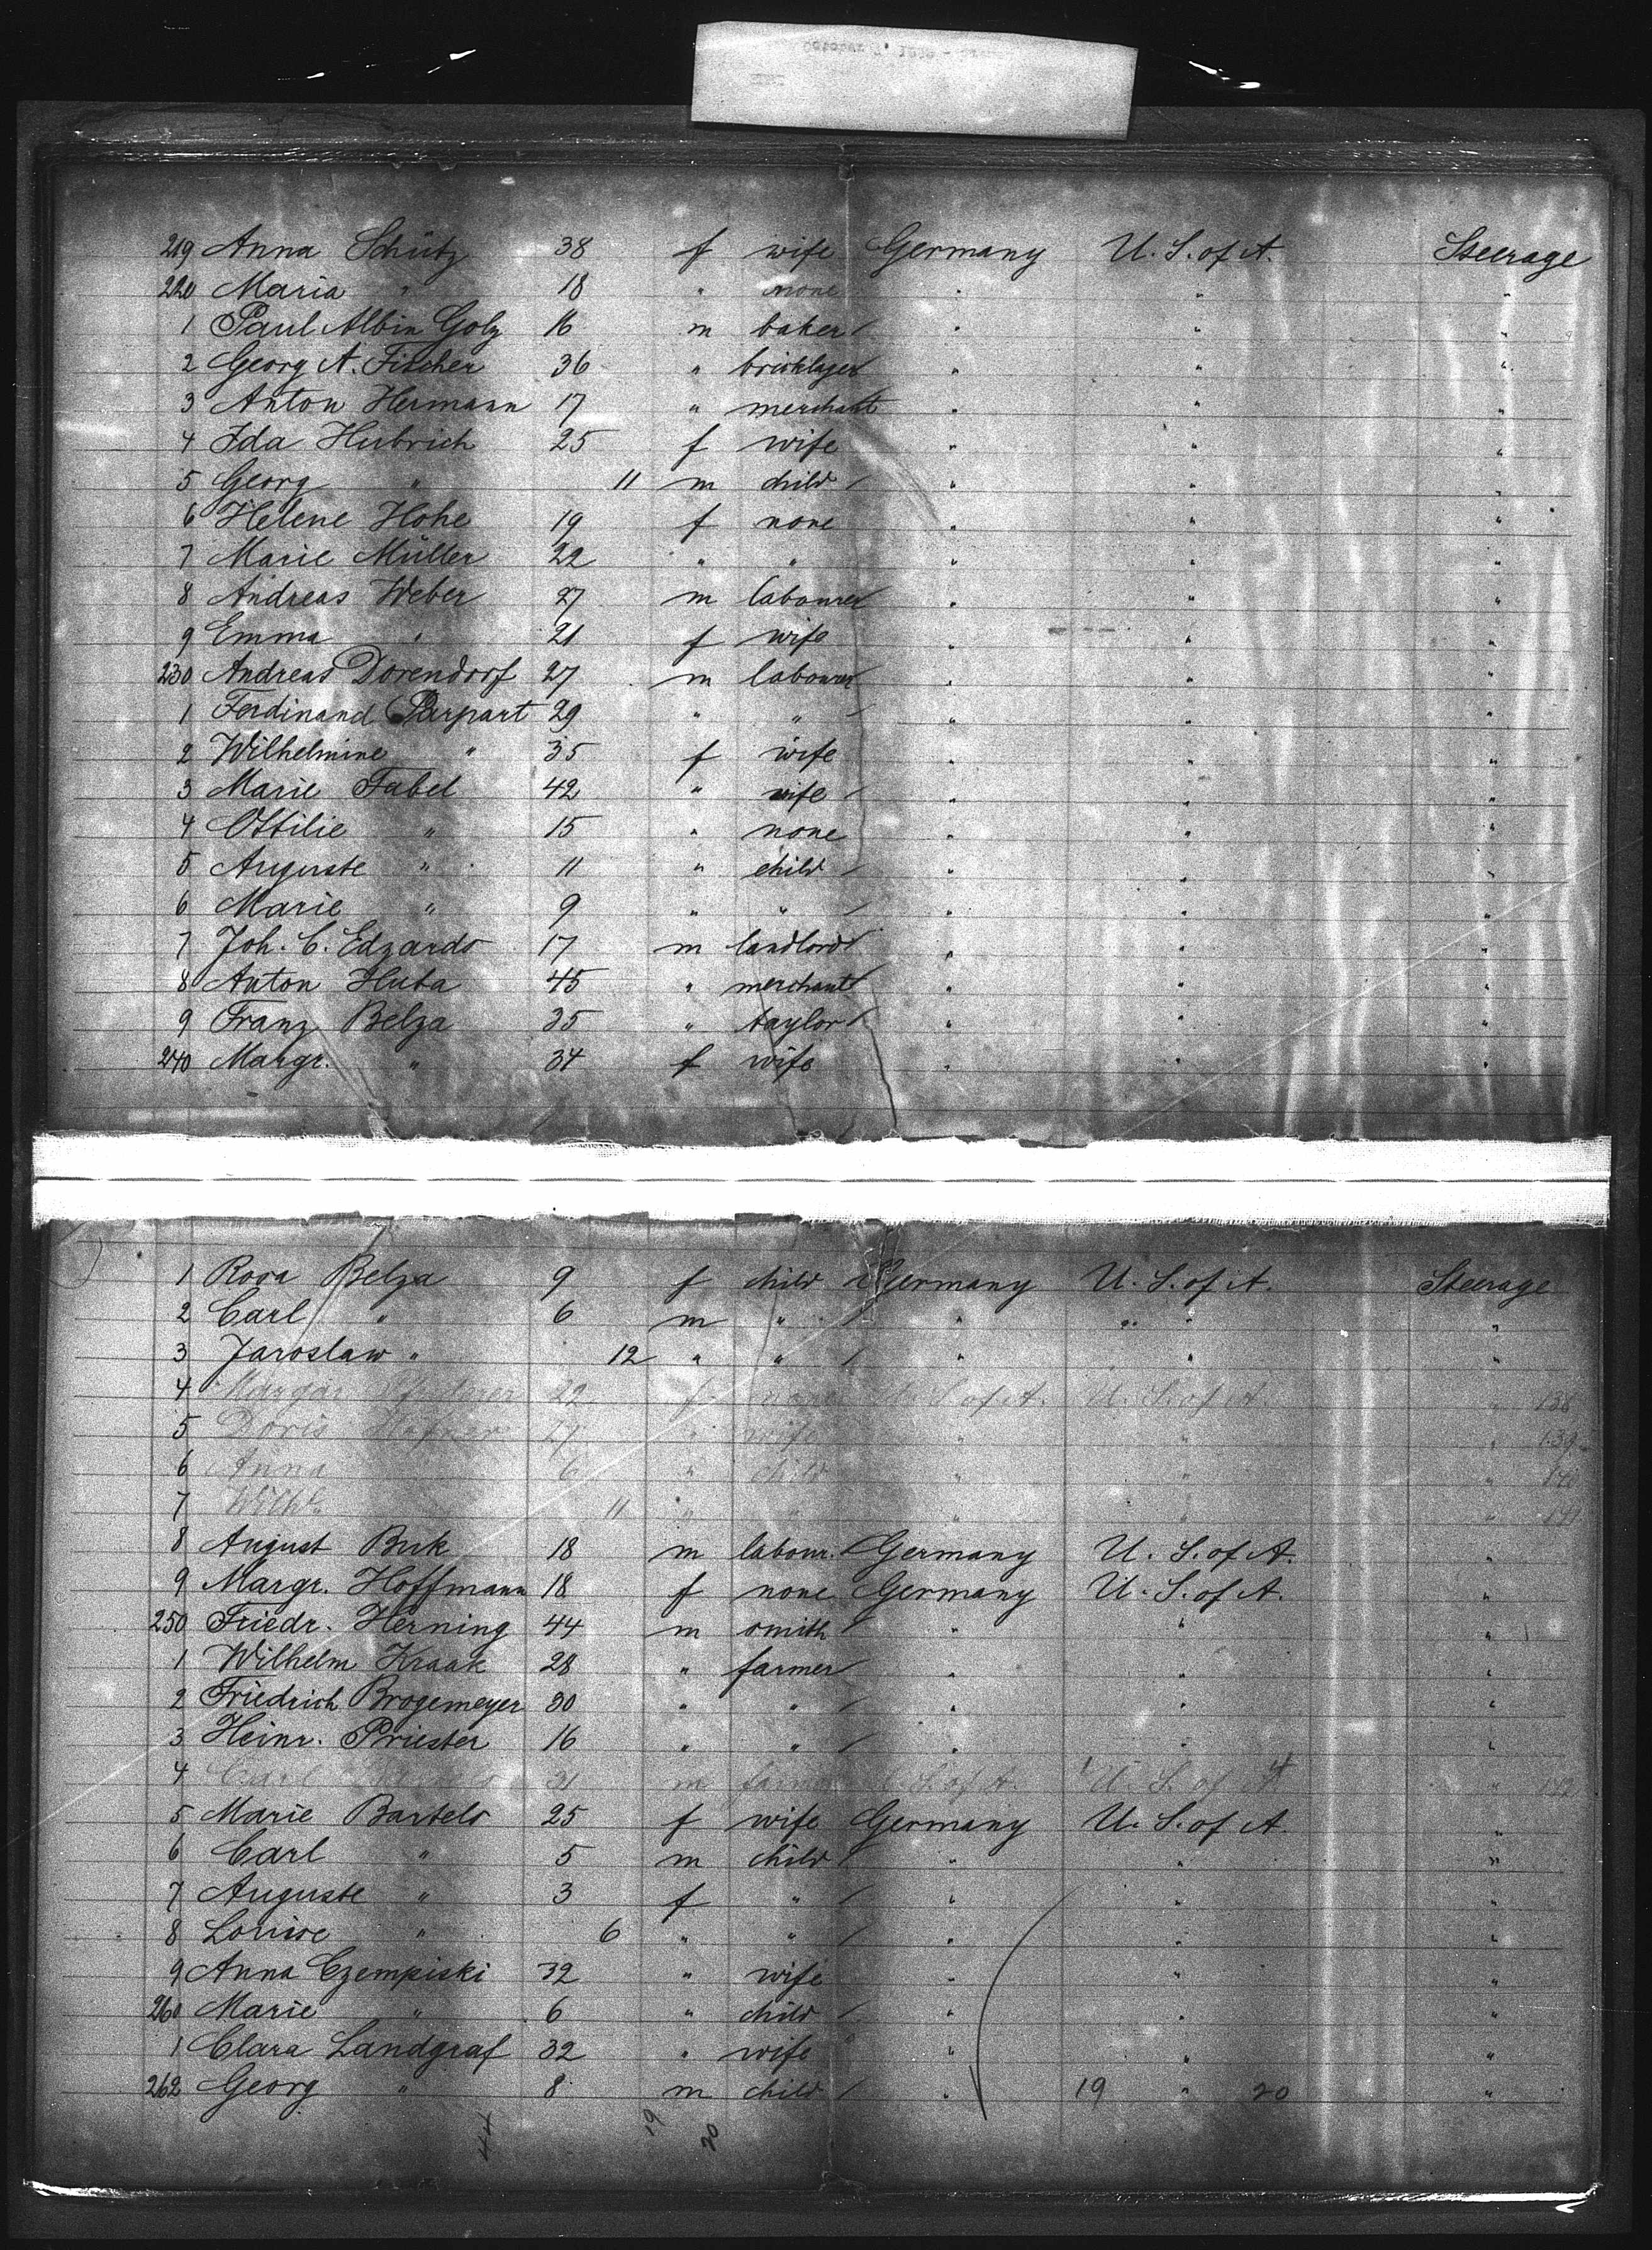 219 Anna Schütz 38 f wife Germany U. S. of A. Steerage
220 Maria " 18 " none " " "
1 Paul Albin Golz 16 m baker " " "
2 Georg A. Fischer 36 " bricklayer " " "
3 Anton Hermann 17 " merchant " " "
4 Ida Hubrich 25 f wife " " "
5 Georg " 11 m child " " "
6 Helene Hohe 19 f none " " "
7 Marie Müller 22 " " " " "
8 Andreas Weber 27 m labourer " " "
9 Emma " 21 f wife " " "
230 Andreas Dorendorf 27 m labourer " " "
1 Ferdinand Parpart 29 " " " " "
2 Wilhelmine " 35 f wife " " "
3 Marie Fabel 42 " wife " " "
4 Ottilie " 15 " none " " "
5 Auguste " 11 " child " " "
6 Marie " 9 " " " " "
7 Joh. C. Edzards 17 m landlord " " "
8 Anton Huba 45 " merchant " " "
9 Franz Belza 35 " taylor " " "
240 Margr. " 34 f wife " " "
1 Rosa Belza 9 f child Germany U. S. of A. Steerage
2 Carl " 6 m " " " "
3 Jaroslaw " 12 " " " " "
4 22 f none U. S. of A. U. S. of A. " 138
5 Doris 27 " wife " " " 139
6 Anna 6 " child " " " 140
7 Wilh. " 11 " " " " " 141
8 August Buk 18 m labour. Germany U. S. of A. "
9 Margr. Hoffmann 18 f none Germany U. S. of A. "
250 Friedr. Herning 44 m smith " " "
1 Wilhelm Kraak 28 " farmer " " "
2 Friedrich Brogemeyer 30 " " " " "
3 Heinr. Priester 16 " " " " "
4 Carl 31 m farmer U. S. of A. U. S. of A. " 142
5 Marie Bartels 25 f wife Germany U. S. of A. "
6 Carl " 5 m child " " "
7 Auguste " 3 f " " " "
8 Louise " 6 " " " " "
9 Anna Czempiski 32 " wife " " "
260 Marie " 6 " child " " "
1 Clara Landgraf 32 " wife " " "
262 Georg " 8 m child " 19 " 20 "
44 19 20